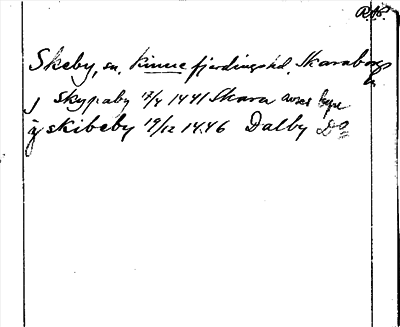 Skeby, sn. Kinne fjerdings hd. Skaraborgs
j skypaby 17/4 1441 Skara
j skibeby 19/12 1446 Dalby Do